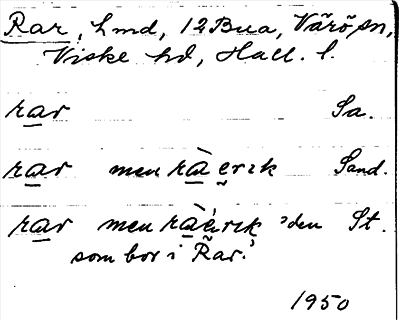 Rar, hmd, 12 Bua, Värö sn,
Viske hd, Hall. l.
rar Sa.
rar men rà erik Sand.
rar men ràérik 'den St.
som bor i Rar.'
1950